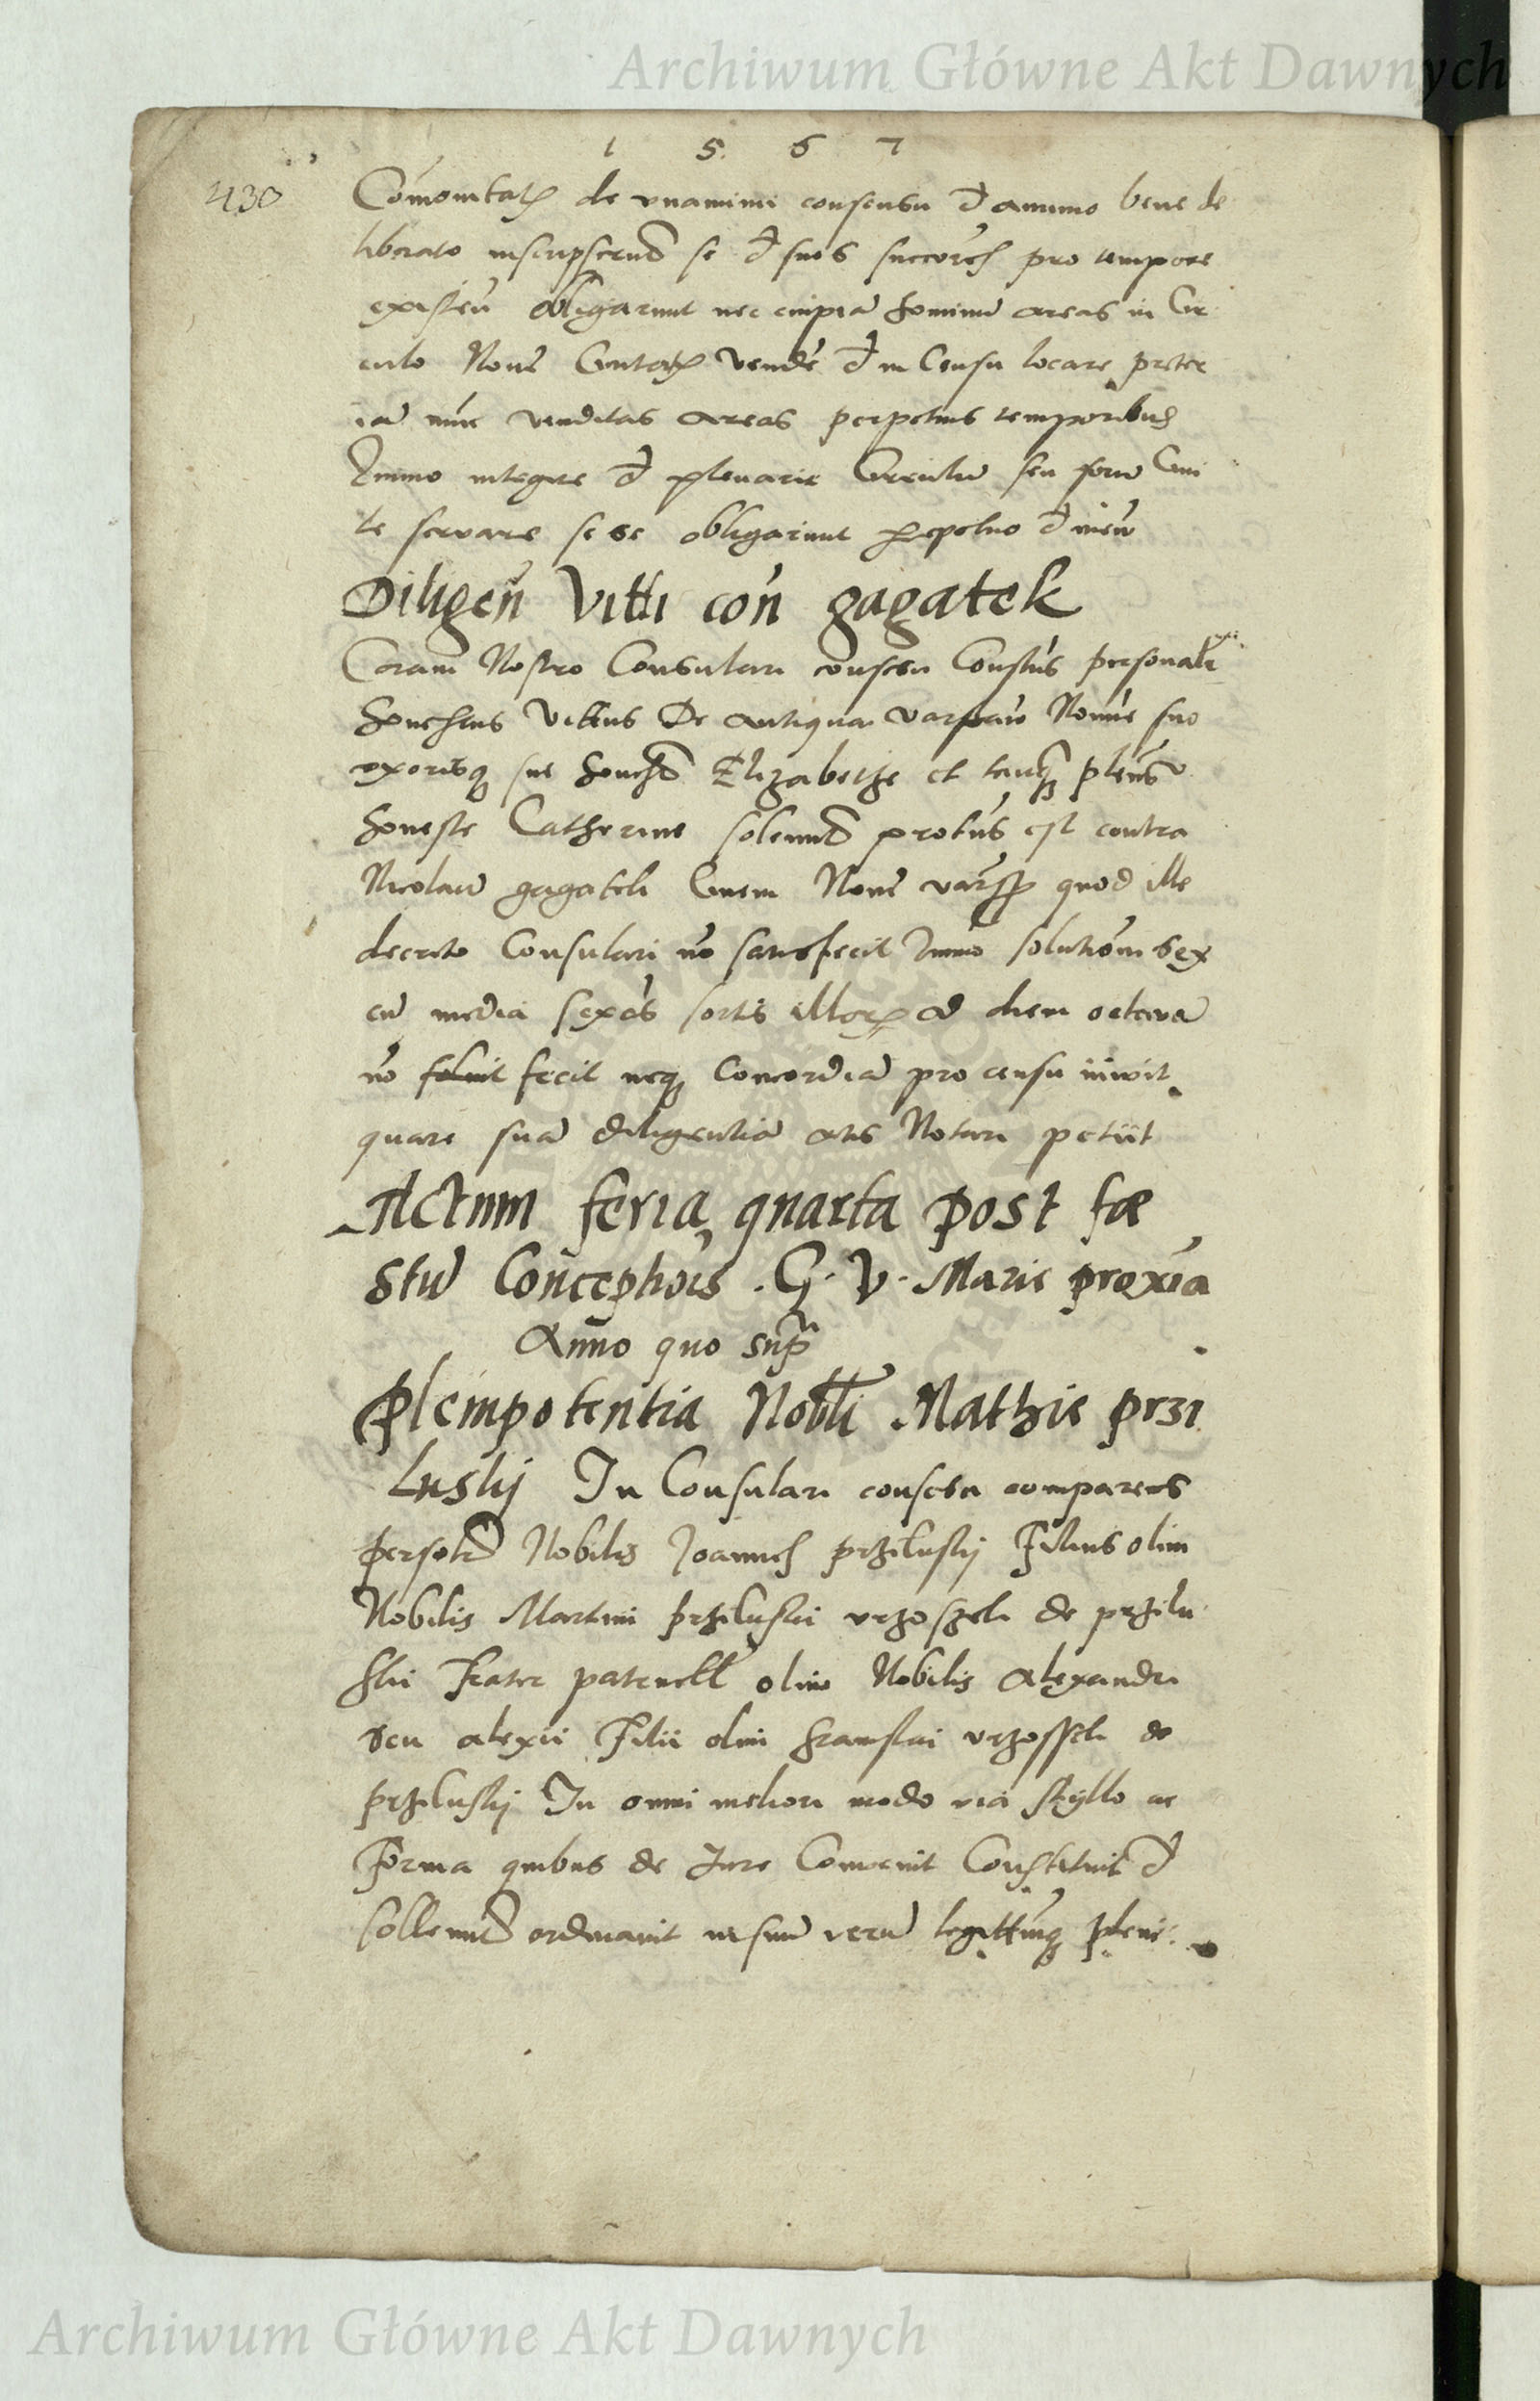 Archiwum Główne Akt Dawnych
1 5 6 7
430
Comonitatis de vnanimi consensu et animo bene de
liberato inscripserunt se et suos succores pro tempore
existen obligarunt nec cuipiam hominum areas in Cir
culo Noue Ciuitatis vendere et in Censu locare preter
iam nunc venditas areas perpetuis temporibus
Immo integre et plenarie Circulum seu forum Ciui
te seruare se se obligarunt perpetuo et in euum
Diligen Vitti con gagatek
Coram Nostro Consulari consessu Constus personalr
Honestus Vittus De antiqua varsauia Nomine suo
vxorisq sue honeste Elizabethe et tanq plenus
honeste Catherine solemnr protus est contra
Nicolaum gagatek Ciuem Noue varsz quod ille
decreto Consulari no satisfecit Immo solutiom sex
cum media sexos sortis illorum ad diem octaua
no soluit fecit neq Concordiam pro censu iniuit
quare suam diligentiam actis Notari petiit
Actum feria quarta post fæ
stum Conceptiois . G . V . Marie proxia
Anno quo supra
Plenipotentia Nobili Mathie przi
luskij In Consulari consessu comparens
personaliter Nobilis Joannes prziluskij Filius olim
Nobilis Martini prziluski vrzoszek de przilu
ski Frater patruelis olim Nobilis Alexandri
seu alexii Filii olim vrzossek de
prziluskij In omni meliori modo via stÿllo ac
Forma quibus de Jure Conuenit Constituit et
sollemniter ordinauit in suum verum legittimumq pleni
Archiwum Główne Akt Dawnych